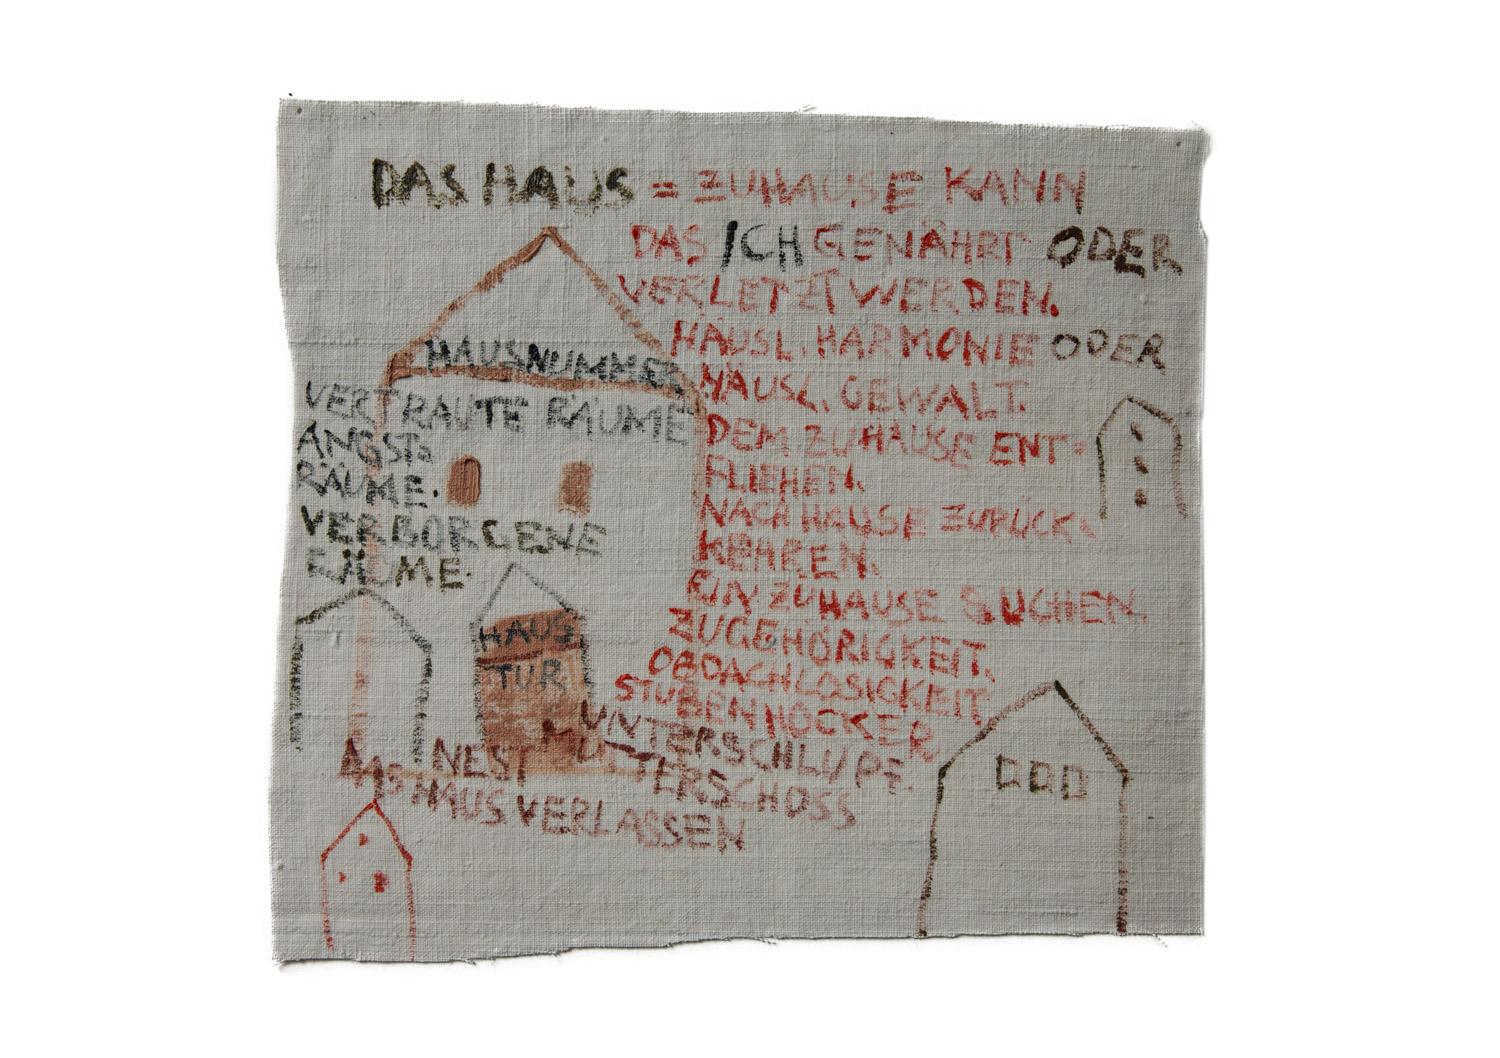 DAS HAUS = ZUHAUSE KANN
DAS ICH GENÄHRT ODER
VERLETZT WERDEN.
HÄUSL. HARMONIE ODER
HÄUSL. GEWALT.
DEM ZUHAUSE ENT=
FLIEHEN.
NACH HAUSE ZURÜCK=
KEHREN.
EIN ZUHAUSE SUCHEN.
ZUGEHÖRIGKEIT.
OBDACHLOSIGKEIT
STUBENHOCKER
UNTERSCHLUPF.
HAUSNUMMER
VERTRAUTE RÄUME
ANGST=
RÄUME.
VERBORGENE
RÄUME.
HAUS
TÜR
NEST MUTTERSCHOSS
DAS HAUS VERLASSEN